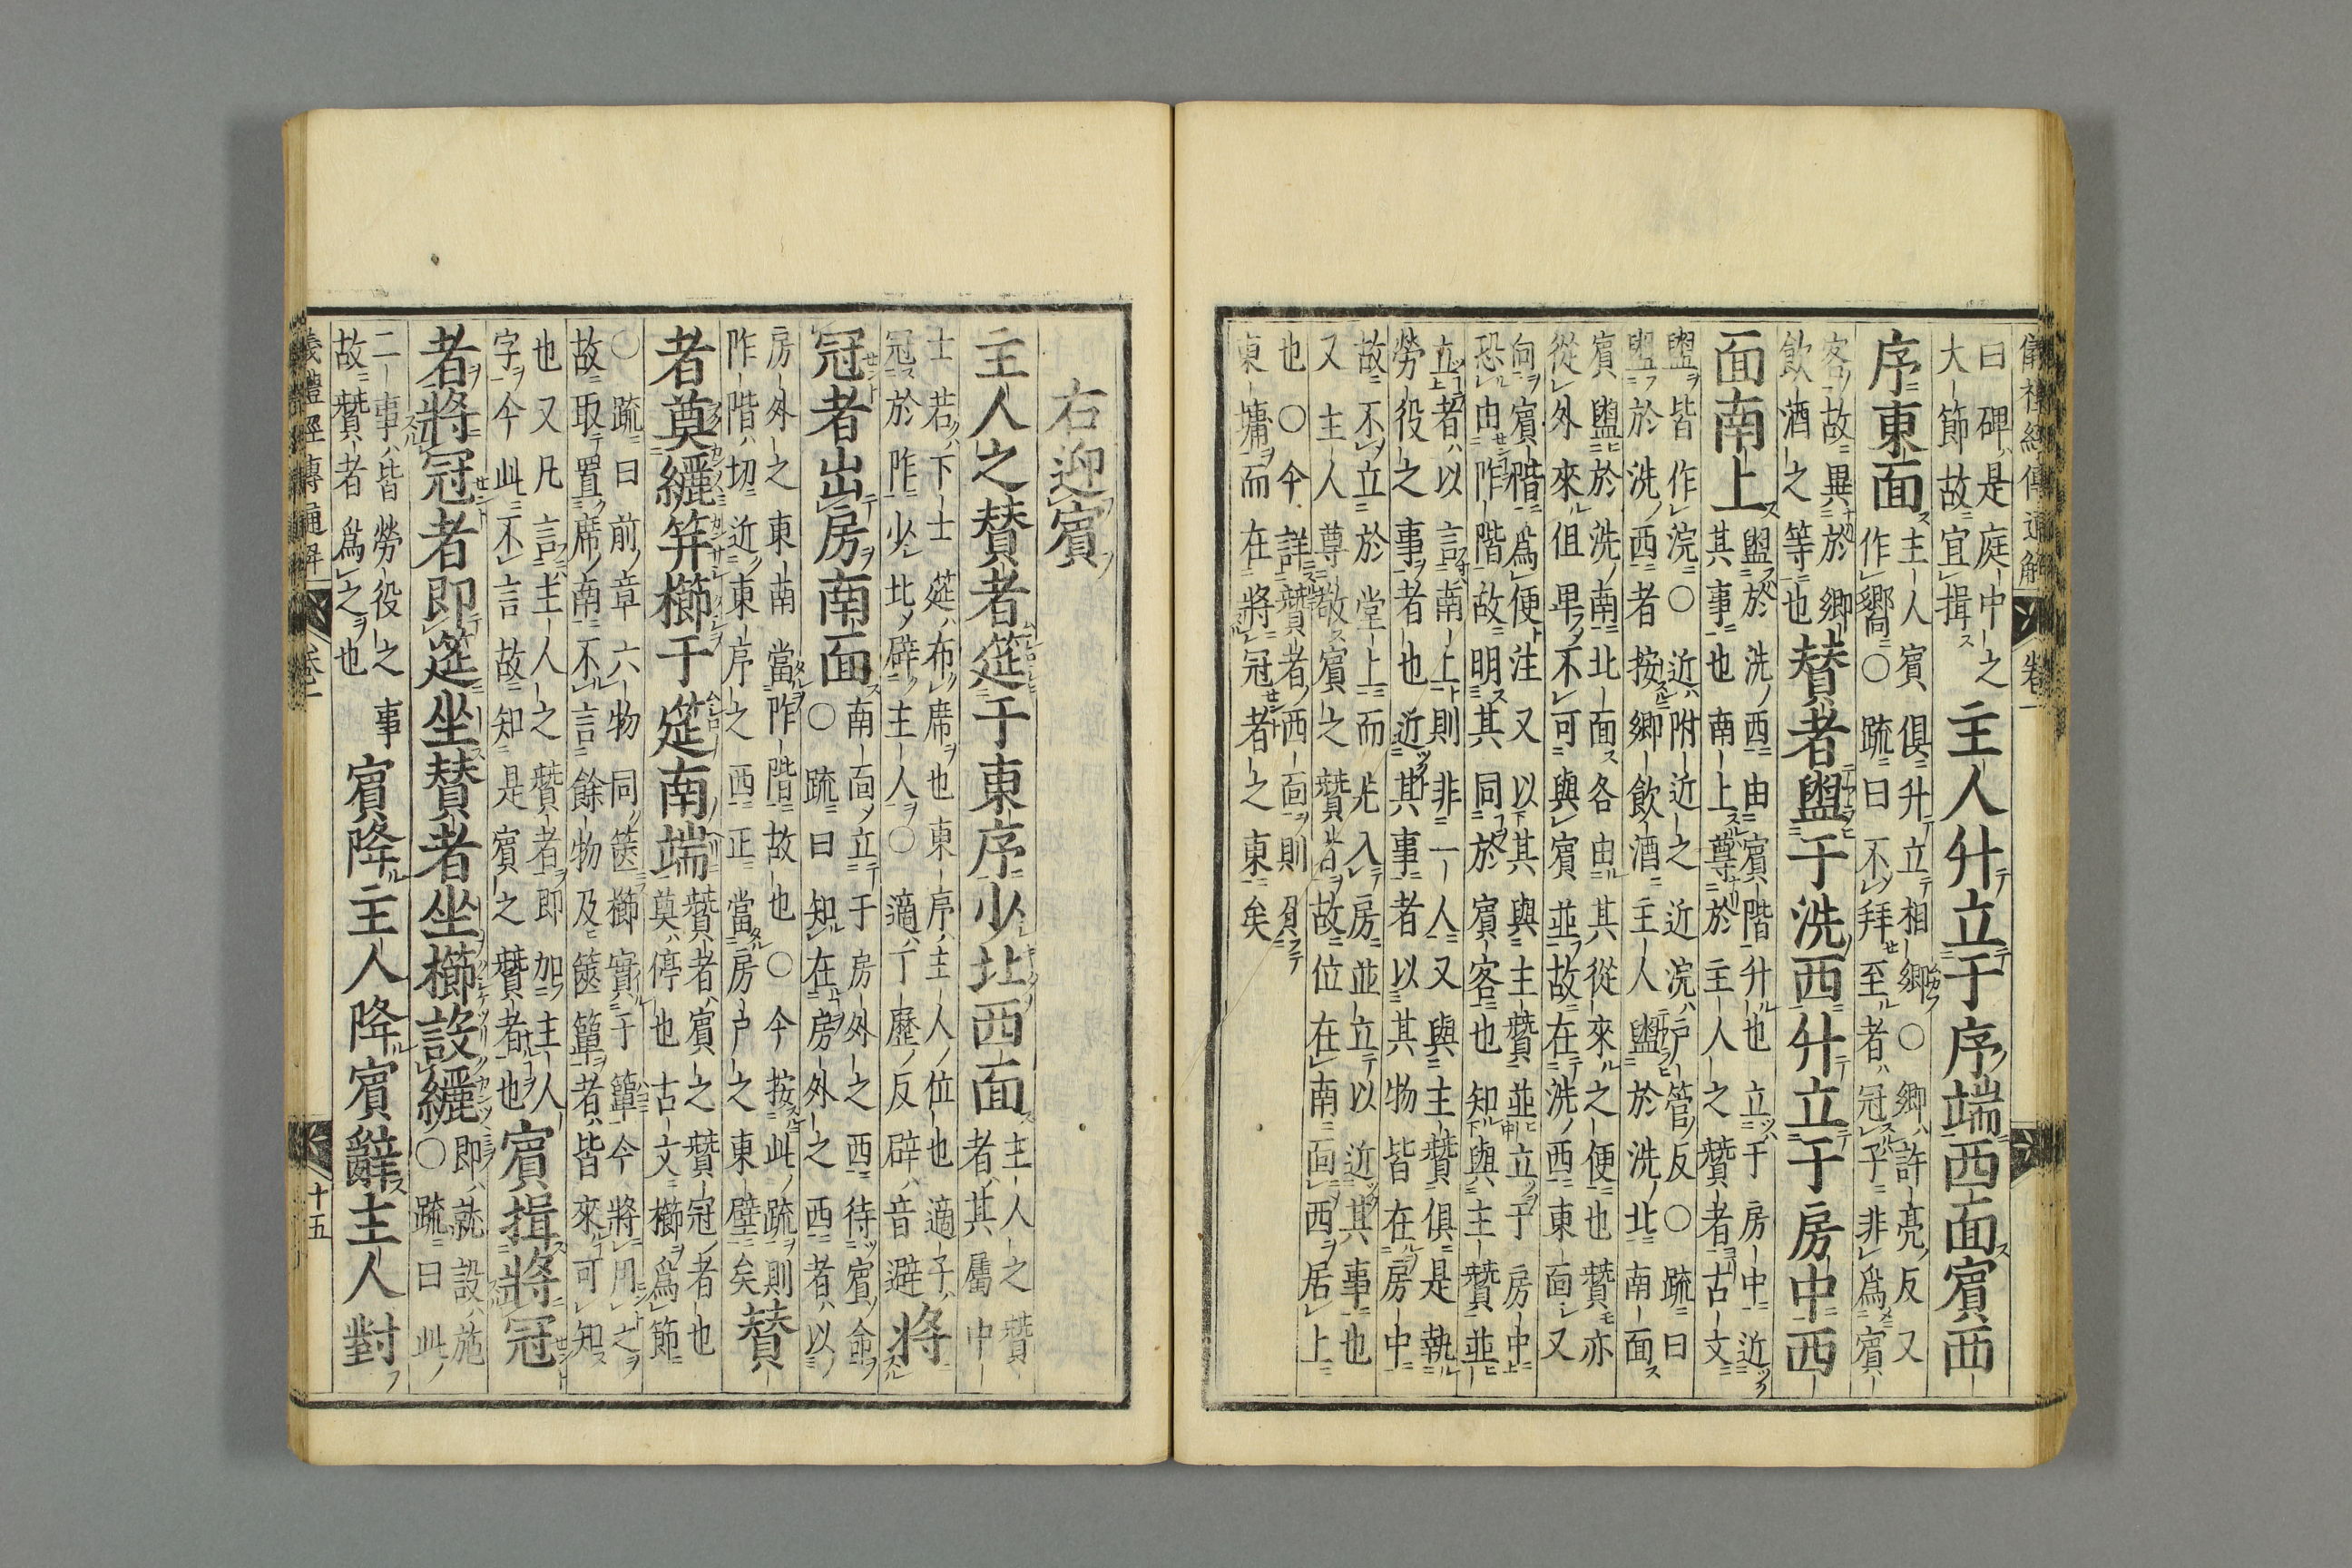 儀禮經傳通解 卷一
曰碑是庭中之
大節故宜揖
主人升立于序端西面賓西
序東面
主人賓俱升立相鄉○鄉許亮反又
作嚮○疏曰不拜至者冠子非爲賓
客故異於鄉
飮酒之等也
贊者盥于洗西升立于房中西
面南上
盥於洗西由賓階升也立于房中近
其事也南上尊於主人之贊者古文
盥皆作浣○近附近之近浣戸管反○疏曰
盥於洗西者按鄉飮酒主人盥於洗北南面
賓盥於洗南北面各由其從來之便也贊亦
從外來但畢不可與賓並故在洗西東面又
向賓階爲便注又以其與主贊並立于房中
恐由阼階故明其同於賓客也知與主贊並
立者以言南上則非一人又與主贊俱是執
勞役之事者也近其事者以其物皆在房中
故不立於堂上而先入房並立以近其事也
又主人尊敬賓之贊者故位在南面西居上
也○今詳贊者西面則負
東墉而在將冠者之東矣
右迎賓
主人之贊者筵于東序少北西面
主人之贊
者其屬中
士若下士筵布席也東序主人位也適子
冠於阼少北辟主人○適丁歷反辟音避
將
冠者出房南面
南面立于房外之西待賓命
○疏曰知在房外之西者以
房外之東南當阼階故也○今按此疏則
阼階切近東序之西正當房戸之東壁矣
贊
者奠纚笄櫛于筵南端
贊者賓之贊冠者也
奠停也古文櫛爲節
○疏曰前章六物同篋櫛實于簞今將用之
故取置席南不言餘物及篋簞者皆來可知
也又凡言主人之贊者即加主人
字今此不言故知是賓之贊者也
賓揖將冠
者將冠者即筵坐贊者坐櫛設纚
即就設施
○疏曰此
二事皆勞役之事
故贊者爲之也
賓降主人降賓辭主人對
儀禮經傳通解 卷一 十五